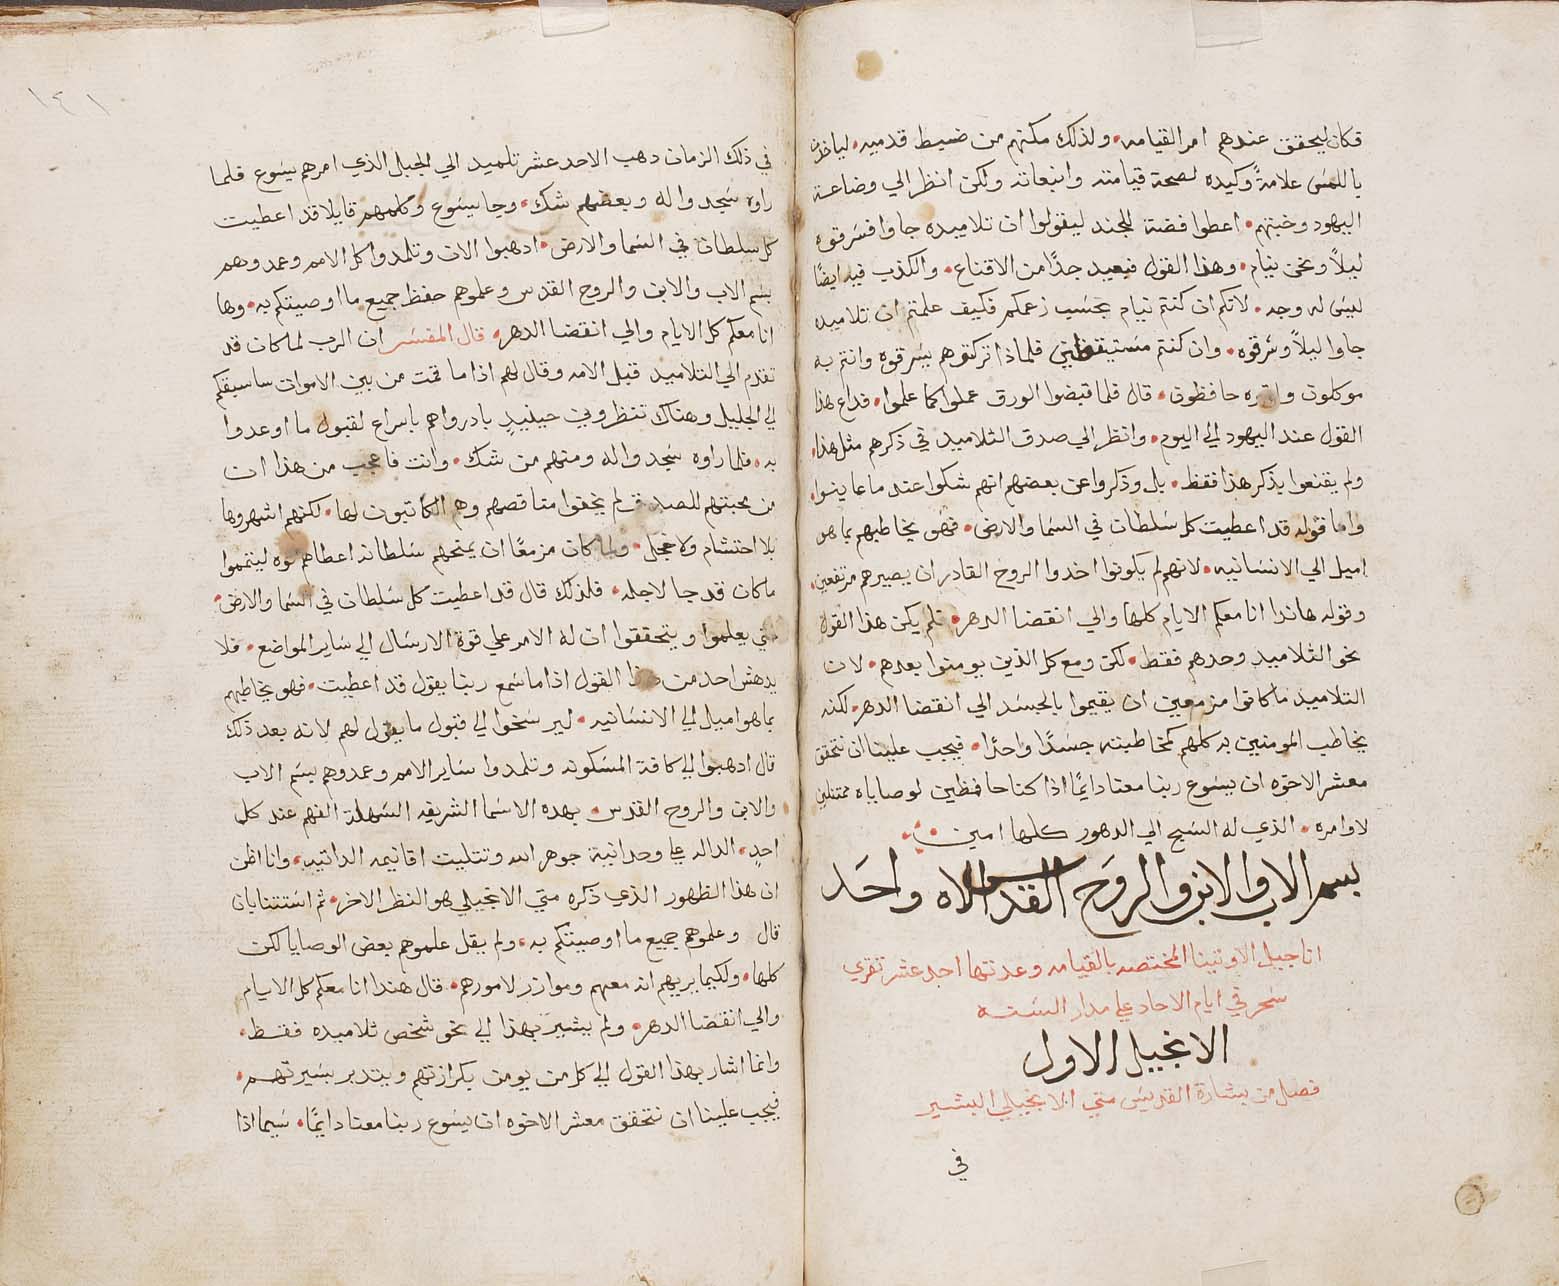 فكان ليحقق عندهم امر القيامه ولذلك مكنهم من ضبط قدميه لياخذن
باللمس علامةً وكيده لصحة قيامته وانبعاثه ولكن انظر الي وضاعة
اليهود وخبثهم اعطوا فضة للجند ليقولوا ان تلاميده جاوا فسرقوه
ليلاً ونحن نيام وهذا القول فبعيد جدًا من الاقناع والكذب فيه ايضًا
ليس له وجه لانكم ان كنتم نيام بحسب زعمكم فكيف علمتم ان تلاميده
جاوا ليلاً وسرقوه وان كنتم مستيقظين فلماذا تركتوهم يسرقوه وانتم به
موكلون حافظون قال فلما قبضوا الورق عملوا كما علموا فداع هذا
القول عند اليهود الي اليوم وانظر الي صدق التلاميد في ذكرهم مثل هذا
ولم يقنعوا بذكر هذا فقط بل وذكروا عن بعضهم انهم شكوا عند ما عاينوا
واما قوله قد اعطيت كل سلطان في السما والارض فهو يخاطبهم بما هو
اميل الي الانسانيه لانهم لم يكونوا اخدوا الروح القادر ان يصيرهم مرتفعين
وقوله هاندا انا معكم الايام كلها والي انقضا الدهر فلم يكن هذا القول
نحو التلاميد وحدهم فقط لكن ومع كل الذين يومنوا بعدهم لان
التلاميد ما كانوا مزمعين ان يقيموا بالجسد الي انقضا الدهر لكنه
يخاطب المومنين به كلهم كمخاطبته جسدًا واحدًا فيجب علينا ان نتحقق
معشر الاخوه ان يسوع ربنا معنا دايمًا اذا كنا حافظين لوصاياه ممتثلين
لاوامره الذي له السبح الي الدهور كلها امين
بسم الاب والابن والروح القدس الاه واحد
اناجيل الاوثينا المختصه بالقيامه وعدتها احد عشر تقري
سحر في ايام الاحاد علي مدار السنه
الانجيل الاول
فصل من بشارة القديس متي الانجيلي البشير
في
١٤١
في ذلك الزمان دهب الاحد عشر تلميد الي الجبل الذي امرهم يسوع فلما
راوه سجدوا له وبعضهم شك وجا يسوع وكلمهم قايلا قد اعطيت
كل سلطان في السما والارض ادهبوا الان وتلمدوا كل الامم وعمدوهم
بسم الاب والابن والروح القدس وعلموهم حفظ جميع ما اوصيتكم به وها
انا معكم كل الايام والي انقضا الدهر قال المفسر ان الرب لما كان قد
تقدم الي التلاميد قبل الامه وقال لهم اذا ما قمت من بين الاموات ساسبقكم
الي الجليل وهناك تنظروني حينيدٍ بادروا هم باسراع لقبول ما اوعدوا
به فلما راوه سجدوا له ومنهم من شك وانت فاعجب من هذا ان
من محبتهم للصدق لم يخفوا مناقصهم وهم الكاتبون لها لكنهم اشهروها
بلا احتشام ولا خجل ولما كان مزمعًا ان يمنحهم سلطانه اعطاهم قوه ليتمموا
ما كان قد جا لاجله فلذلك قال قد اعطيت كل سلطان في السما والارض
حتي يعلموا ويتحققوا ان له الامر علي قوة الارسال الي ساير المواضع فلا
يدهش احد من هذا القول اذا ما سمع ربنا يقول قد اعطيت فهو يخاطبهم
بما هو اميل الي الانسانيه ليرسخوا الي قبول ما يقول لهم لانه بعد ذلك
قال ادهبوا الي كافة المسكونه وتلمدوا ساير الامم وعمدوهم بسم الاب
والابن والروح القدس بهده الاسما الشريفه السهلة الفهم عند كل
احدٍ الداله علي وحدانية جوهر الله وتتليت اقانيمه الداتيه وانا اظن
ان هذا الظهور الذي ذكره متي الانجيلي هو النظر الاخر ثم استتنا بان
قال وعلموهم جميع ما اوصيتكم به ولم يقل علموهم بعض الوصايا لكن
كلها ولكيما يريهم انه معهم وموازر لامورهم قال هندا انا معكم كل الايام
والي انقضا الدهر ولم يشير بهذا الي نحو شخص تلاميده فقط
وانما اشار بهذا القول الي كل من يومن بكرازتهم ويتدبر بسيرتهم
فيجب علينا ان نتحقق معشر الاخوه ان يسوع ربنا معنا دايمًا سيما اذا